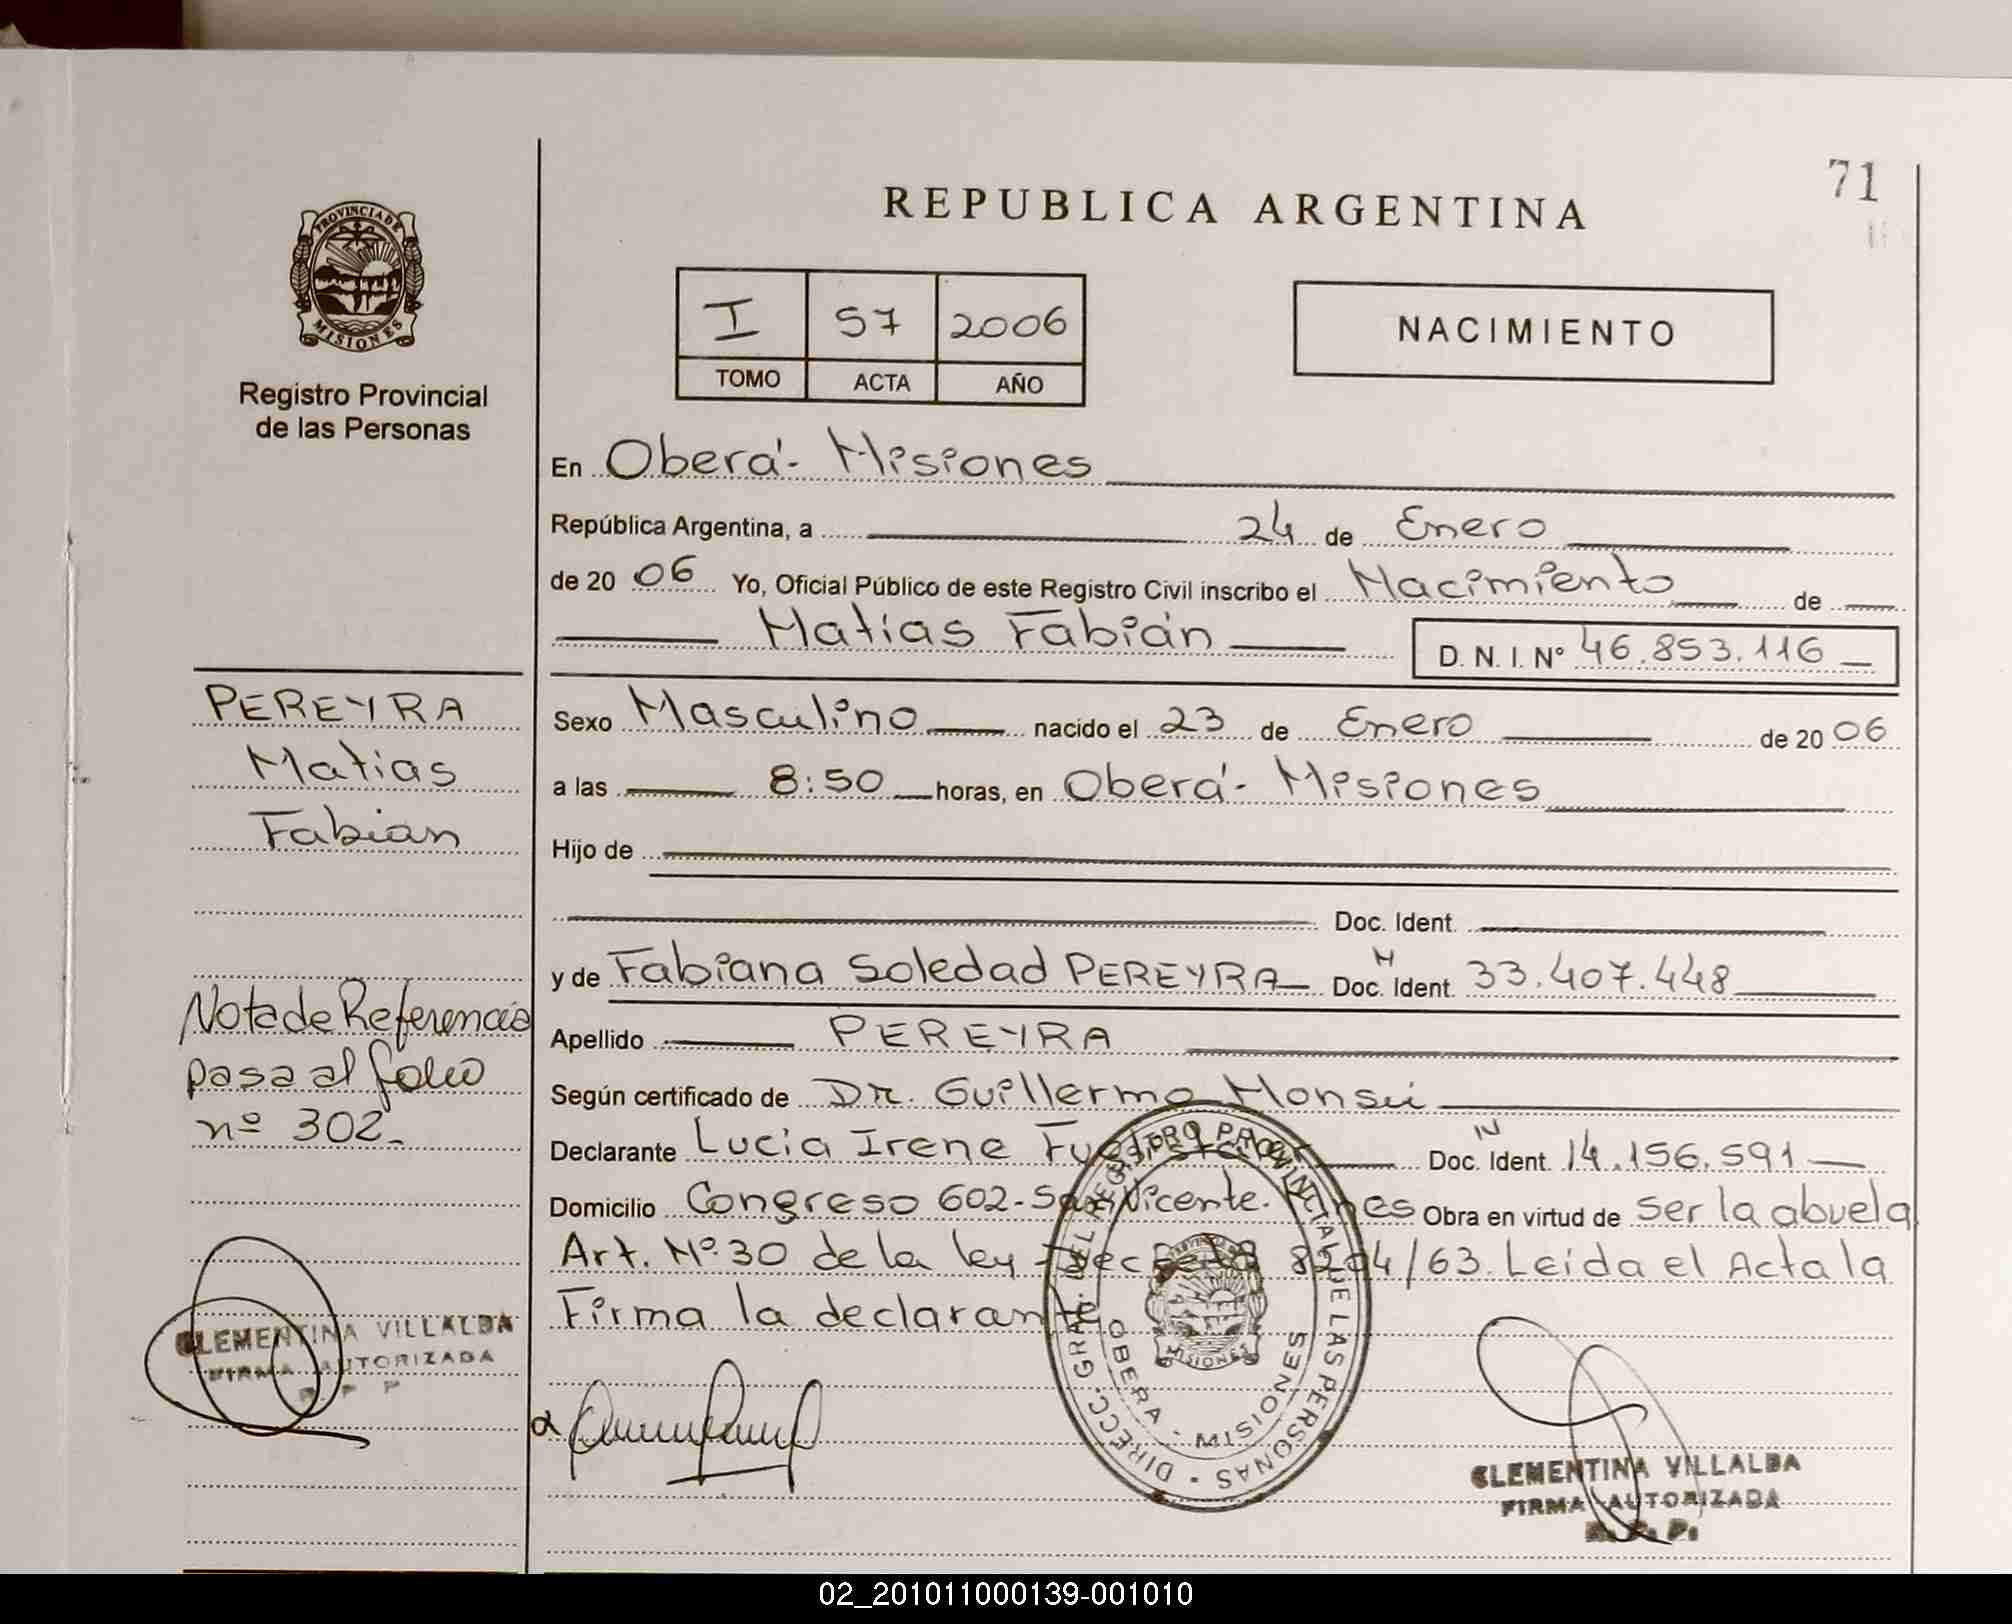 71
REPUBLICA ARGENTINA
PROVINCIA DE
MISIONES
Registro Provincial
de las Personas
I 57 2006
TOMO ACTA AÑO
NACIMIENTO
En Oberá - Misiones
República Argentina, a 24 de Enero
de 20 06 Yo, Oficial Público de este Registro Civil inscribo el Nacimiento de
Matías Fabián D. N. I. Nº 46.853.116
PEREYRA
Matias
Fabián
Sexo Masculino nacido el 23 de Enero de 20 06
a las 8:50 horas, en Oberá - Misiones
Hijo de
Doc. Ident.
y de Fabiana Soledad PEREYRA Doc. N Ident. 33.407.448
Apellido PEREYRA
Según certificado de Dr. Guillermo
Declarante Lucia Irene Doc. N Ident. 14.156.591
Domicilio Congreso 602 - San Vicente. Obra en virtud de ser la abuela
Art. Nº 30 de la ley Decreto 8204/63. Leída el Acta la
Firma la declarante
Nota de Referencia
pasa al folio
nº 302.
CLEMENTINA VILLALBA
FIRMA AUTORIZADA
R. P. P.
DIRECC. GRAL. DEL REGISTRO PROVINCIAL DE LAS PERSONAS
OBERA - MISIONES
MISIONES
CLEMENTINA VILLALBA
FIRMA AUTORIZADA
R. P. P.
02_201011000139-001010